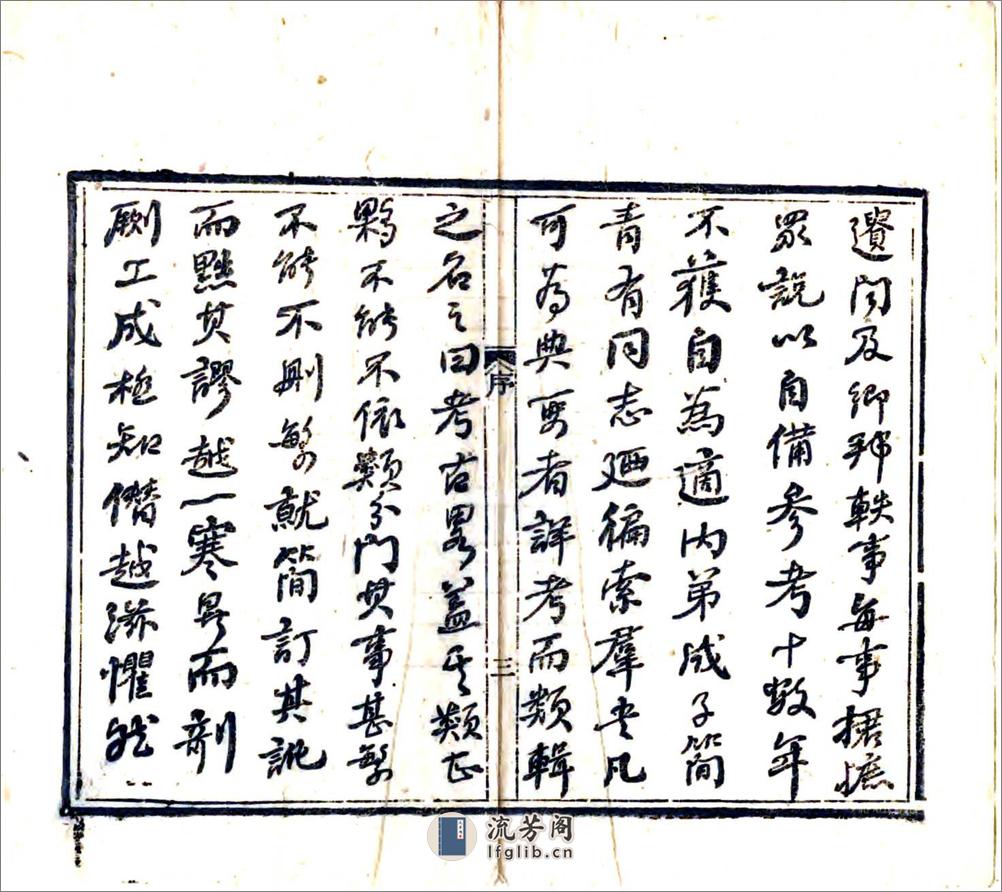 遺聞及鄉邦軼事每事捃摭
眾說以自備參考十數年
不獲自為適內弟成子簡
青有同志廼徧索羣書凡
可為典要者詳考而類輯
序
二
之名之曰考古畧蓋其類正
夥不能不依類分門其事甚繁
不能不刪繁就簡訂其訛
而黜其謬越一寒暑而剞
劂工成極知僭越滋懼然
流芳阁
lfglib.cn